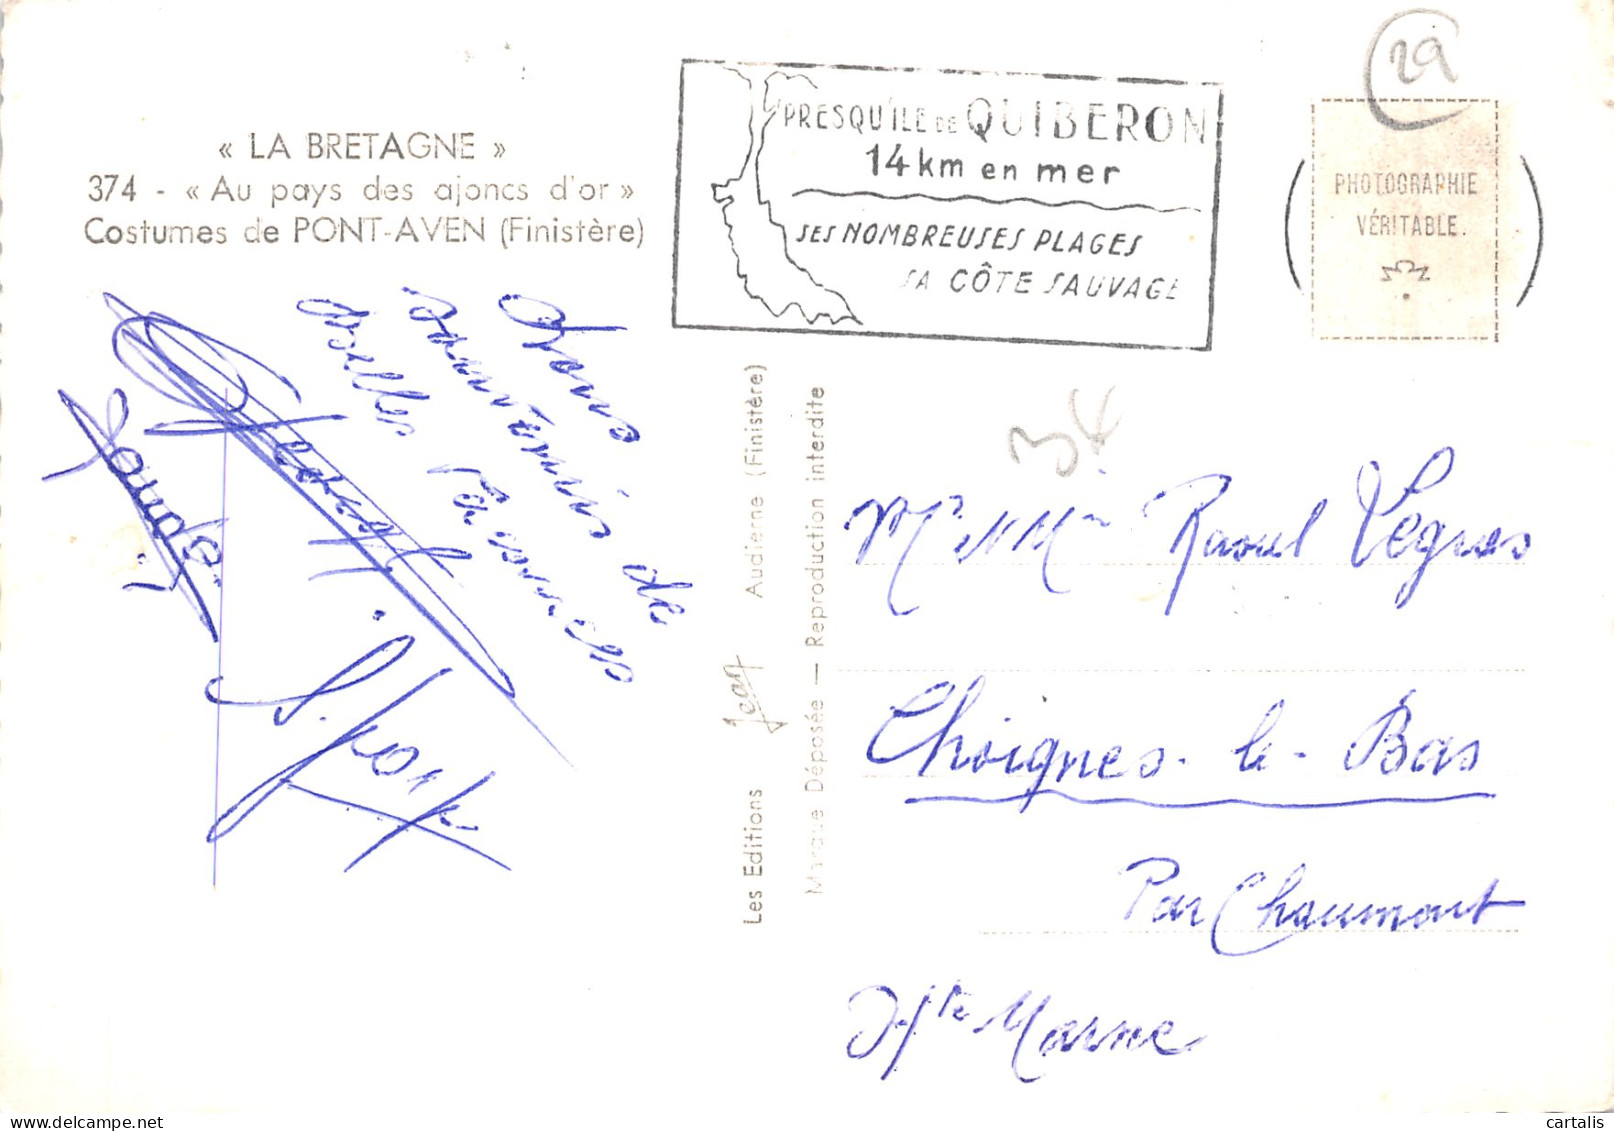 « LA BRETAGNE »
374 - « Au pays des ajoncs d'or »
Costumes de PONT-AVEN (Finistère)
PRESQU'ILE DE QUIBERON
14 km en mer
SES NOMBREUSES PLAGES
SA CÔTE SAUVAGE
29
PHOTOGRAPHIE
VÉRITABLE.
Bons
souvenirs de
belles vacances
Les Editions Jean Audierne (Finistère)
Marque Déposée — Reproduction interdite
3€
Mr et Mme Raoul Legros
Choignes-le-Bas
Par Chaumont
Hte Marne
cartalis